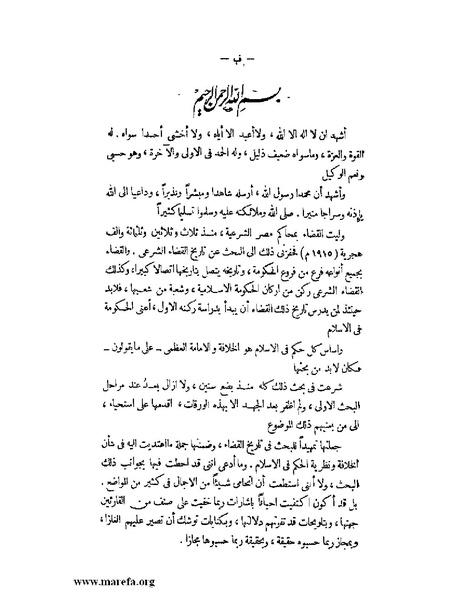 — ب —
بسم الله الرحمن الرحيم
أشهد ان لا اله الا الله ، ولا أعبد الا أياه ، ولا أخشى أحدا سواه . له
القوة والعزة ، وماسواه ضعيف ذليل ، وله الحمد في الاولى والآخرة ، وهو حسبي
ونعم الوكيل
وأشهد أن محمدا رسول الله ، أرسله شاهدا ومبشراً ونذيراً ، وداعيا الى الله
بإذنه وسراجا منيرا . صلى الله وملائكته عليه وسلموا تسليما كثيراً
وليت القضاء بمحاكم مصر الشرعية ، منذ ثلاث وثلاثين وثلثمائة وألف
هجرية (١٩١٥ م) فحفزني ذلك الى البحث عن تاريخ القضاء الشرعي . والقضاء
بجميع أنواعه فرع من فروع الحكومة ، وتاريخه يتصل بتاريخها اتصالا كبيرا ، وكذلك
القضاء الشرعي ركن من اركان الحكومة الاسلامية ، وشعبة من شعبها ، فلابد
حينئذ لمن يدرس تاريخ ذلك القضاء أن يبدأ بدراسة ركنه الاول ، أعني الحكومة
في الاسلام
وأساس كل حكم في الاسلام هو الخلافة والامامة العظمى – على ما يقولون –
فكان لابد من بحثها
شرعت في بحث ذلك كله منذ بضع سنين ، ولا ازال بعد عند مراحل
البحث الاولى ، ولم اظفر بعد الجهد الا بهذه الورقات ، اقدمها على استحياء ،
الى من يعنيهم ذلك الموضوع
جعلتها تمهيداً للبحث في تاريخ القضاء ، وضمنتها جملة ما اهتديت اليه في شأن
الخلافة ونظرية الحكم في الاسلام . وما أدعي انني قد احطت فيها بجوانب ذلك
البحث ، ولا أنني استطعت أن اتحامى شيئاً من الاجمال في كثير من المواضع .
بل قد أكون اكتفيت احياناً بإشارات ربما خفيت على صنف من القارئين
جهتها ، وبتلويحات قد تفوتهم دلالتها ، وبكنايات توشك أن تصير عليهم الغازا ،
وبمجاز ربما حسبوه حقيقة ، وبحقيقة ربما حسبوها مجازا .
www.marefa.org